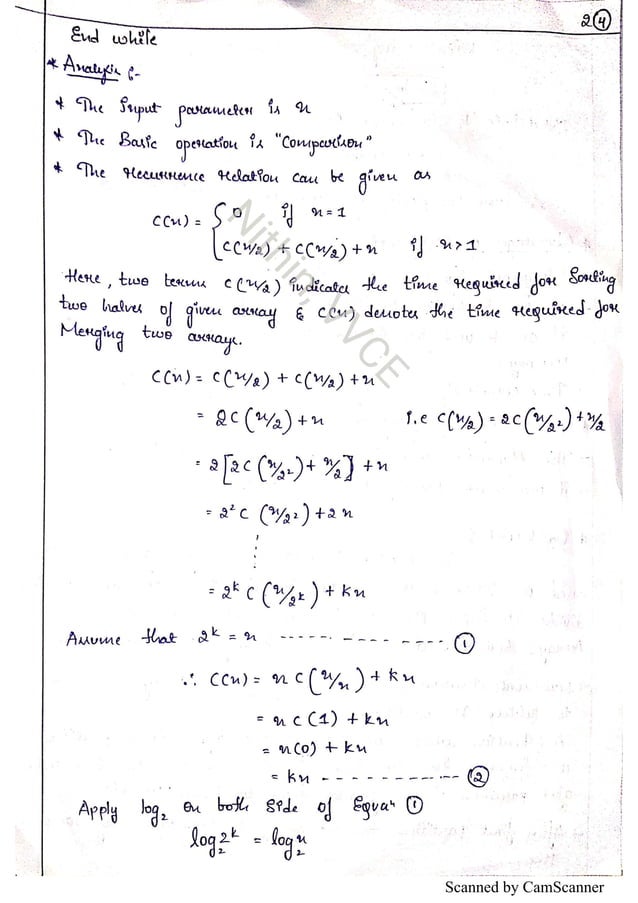 2 4
End while
* Analysis :-
* The Input parameter is n
* The Basic operation is "Comparison"
* The Recurrence Relation can be given as
C(n) = { 0 if n = 1
C(n/2) + C(n/2) + n if n > 1
Here, two terms C(n/2) indicates the time required for Sorting
two halves of given array & C(n) denotes the time required for
Merging two arrays.
C(n) = C(n/2) + C(n/2) + n
= 2C(n/2) + n I.e C(n/2) = 2C(n/2²) + n/2
= 2[2C(n/2²) + n/2] + n
= 2²C(n/2²) + 2n
= 2ᵏ C(n/2ᵏ) + kn
Assume that 2ᵏ = n ------ - ---- ---- ①
∴ C(n) = n C(n/n) + kn
= n C(1) + kn
= n(0) + kn
= kn ------------ ②
Apply log₂ on both side of Equaⁿ ①
log₂ 2ᵏ = log₂ n
Nithin, VVCE
Scanned by CamScanner